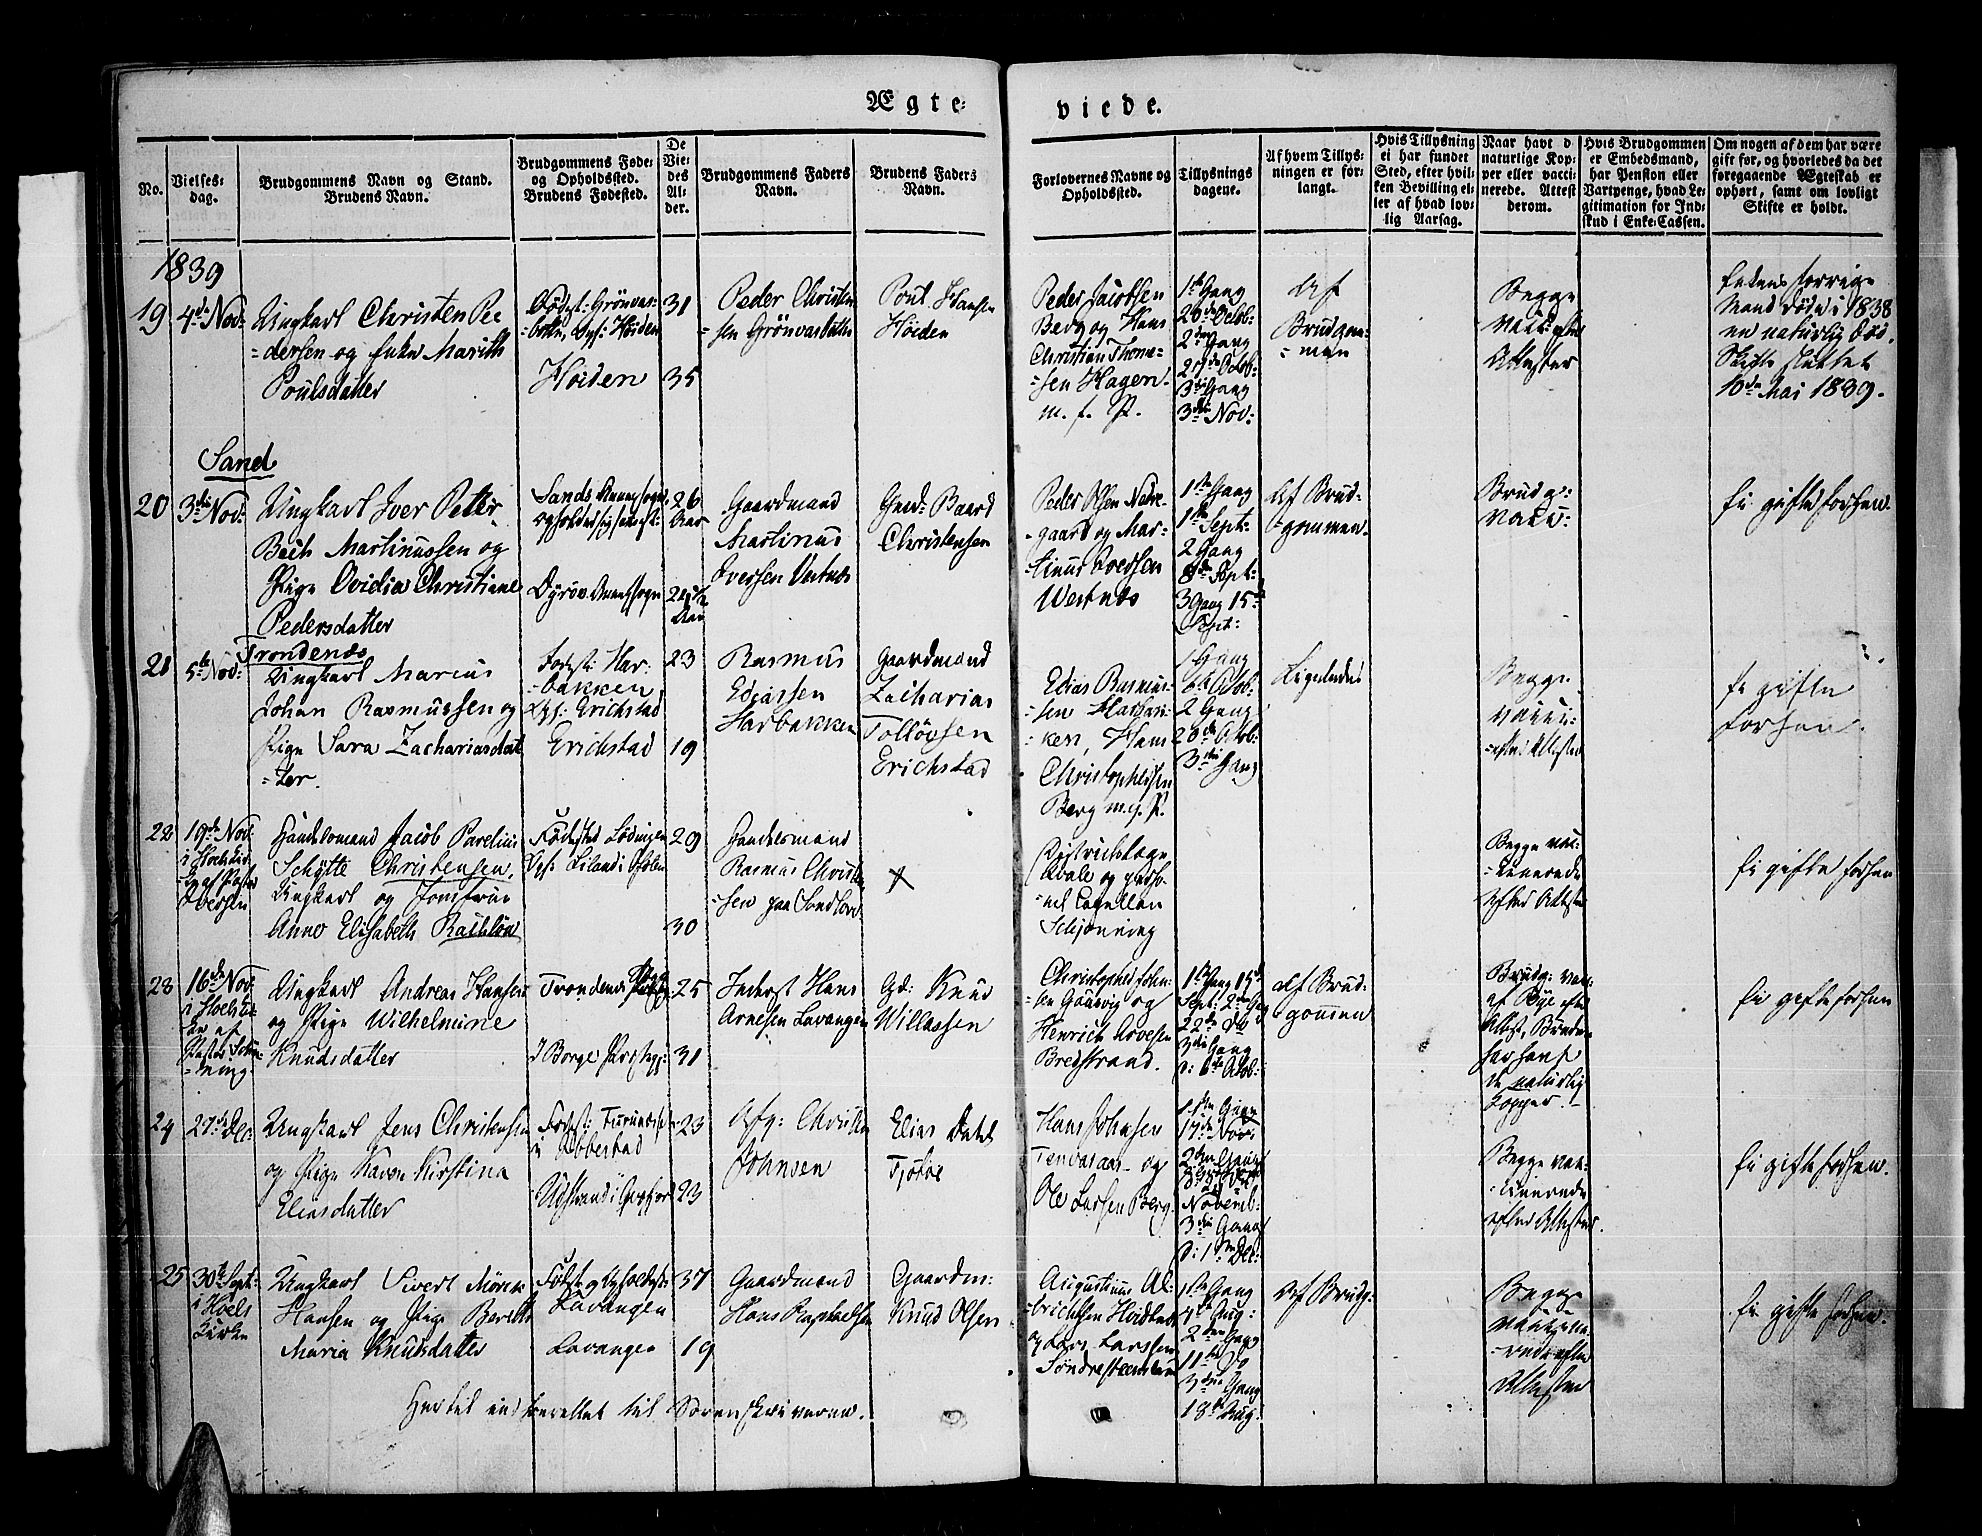 Ægte-
viede.
No.
Vielses-
dag.
Brudgommens Navn og Stand.
Brudens Navn.
Brudgommens Føde-
og Opholdssted.
Brudens Fødested.
De
Vie-
des
Al-
der.
Brudgommens Faders
Navn.
Brudens Faders
Navn.
Forlovernes Navne og
Opholdssted.
Tillysnings
dagene.
Af hvem Tillys-
ningen er for-
langt.
Hvis Tillysning
ei har fundet
Sted, efter hvil-
ken Bevilling el-
ler af hvad lov-
lig Aarsag.
Naar havt d
naturlige Kop-
per eller vacci-
nerede. Attest
derom.
Hvis Brudgommen
er Embedsmand,
har Pension eller
Vartpenge, hvad Le-
gitimation for Ind-
skud i Enke-Cassen.
Om nogen af dem har være
gift før, og hvorledes da det
foregaaende Ægteskab er
ophørt, samt om lovligt
Skifte er holdt.
1839
19
4de Nov:
Ungkarl Christen Pe
dersen og Enke Marith
Poulsdatter
Fødest: Grönvas-
botn, Ops: Höiden
Höiden
31
35
Peder Christen
sen Grönvasbotn
Poul Hansen
Höiden
Peder Jacobsen
Berg og Hans
Christian Thoma-
sen Hagen
m. f. P.
1ste Gang
20de Octob:
2den Gang
27de Octob:
3die Gang
3die Nov:
Af
Brudgom-
men
Begge
vacc: efter
Attester
Enkens forrige
Mand döde i 1838
en naturlig Död.
Skifte sluttet
10de Mai 1839.
Sand
20
3die Nov:
Ungkarl Iver Petter
Beck Martinussen og
Pige Ovidia Christiane
Pedersdatter
Sands Annexsogn
opholdes
Dyröe Annexsogn
26
Aar
Aar
Gaardmand
Martinus
Iversen Vestnes
Gmd: Baard
Christensen
Peder Olsen Nedre-
gaard og Mar-
tinus Iversen
Westnes
1ste Gang
1ste Sept:
2 Gang
8de Sept:
3 Gang 15de
Sept:
Af Brud-
gommen
Brudg:
Vacc:
Ei gifte forhen
Trondenæs
21
5te Nov:
Ungkarl Marius
Johan Rasmussen og
Pige Sara Zachariasdat
ter.
Fødest: Har-
bakken
Ops: Erichstad
Erichstad
23
19
Rasmus
Ediassen
Harbakken
Gaardmand
Zacharias
Tollövsen
Erichstad
Edias Rasmus-
sen Harbak-
ken, Hans
Christophersen
Berg m. f. P.
1 Gang
6te Octob:
2 Gang
20de Octob:
3die Gang
Ligeledes
Begge
vacci-
efter Attester
Ei gifte
forhen.
22
19de Nov:
Handelsmand Jacob Parelius
Schytte Christensen,
Ungkarl og Jomfrue
Anne Elisabeth Rachlöw
Födested Lödingen
29
30
Handelsmand
Rasmus Christen
sen paa Sandtorv
X
Districtslæge
Qvale og perso-
nel Capellan
Schjönning
Begge vac-
cinerede
efter Attester
Ei gifte forhen
23
16de Nov:
Ungkarl Andreas Hansen
og Pige Wilhelmine
Knudsdatter
Trondenes
I Borge Præstegj:
25
31
Inderst Hans
Arnesen Lavangen
Gd: Knud
Willassen
Christopher John-
sen Gaasvig og
Henrich Arvesen
Bredstrand.
1ste Gang 15de
Sept: 2den Gang
22de Do
3die Gang
d: 6te Octob:
Af Brud-
gommen
Brudg: vac:
efter
Attest, Bruden
har havt
de naturlig
Kopper.
Ei gifte forhen
24
27de Dec
Ungkarl Jens Christensen
og Pige Karen Kirstina
Eliasdatter
Ibbestad
23
23
Afg: Christen
Johnsen
Elias Dahl
Tjötöe
Hans Johnsen
Tenvasaas og
Ole Larsen Berg
1ste Gang
17de Nov:
2den Gang
Novemb:
3die Gang
d: 1ste Dec:
Begge vac-
cinerede
efter Attester.
Ei gifte forhen.
25
30te Sept:
i Hoels
Kirke
Ungkarl Sivert Mörk
Hansen og Pige Bereth
Maria Knudsdatter
Födest: og Opholdsst:
Lavangen
Lavangen
37
19
Gaardmand
Hans
Gaardm:
Knud Olsen
Augustinus Al-
brichtsen
og Lars Larssen
1ste Gang
4de Aug:
2den Gang
11te Do
3die Gang
18de Aug:
Af Brudg:
Begge
efter
Attester
Ei gifte forhen.
Hertil indberettet til Sorenskriveren.